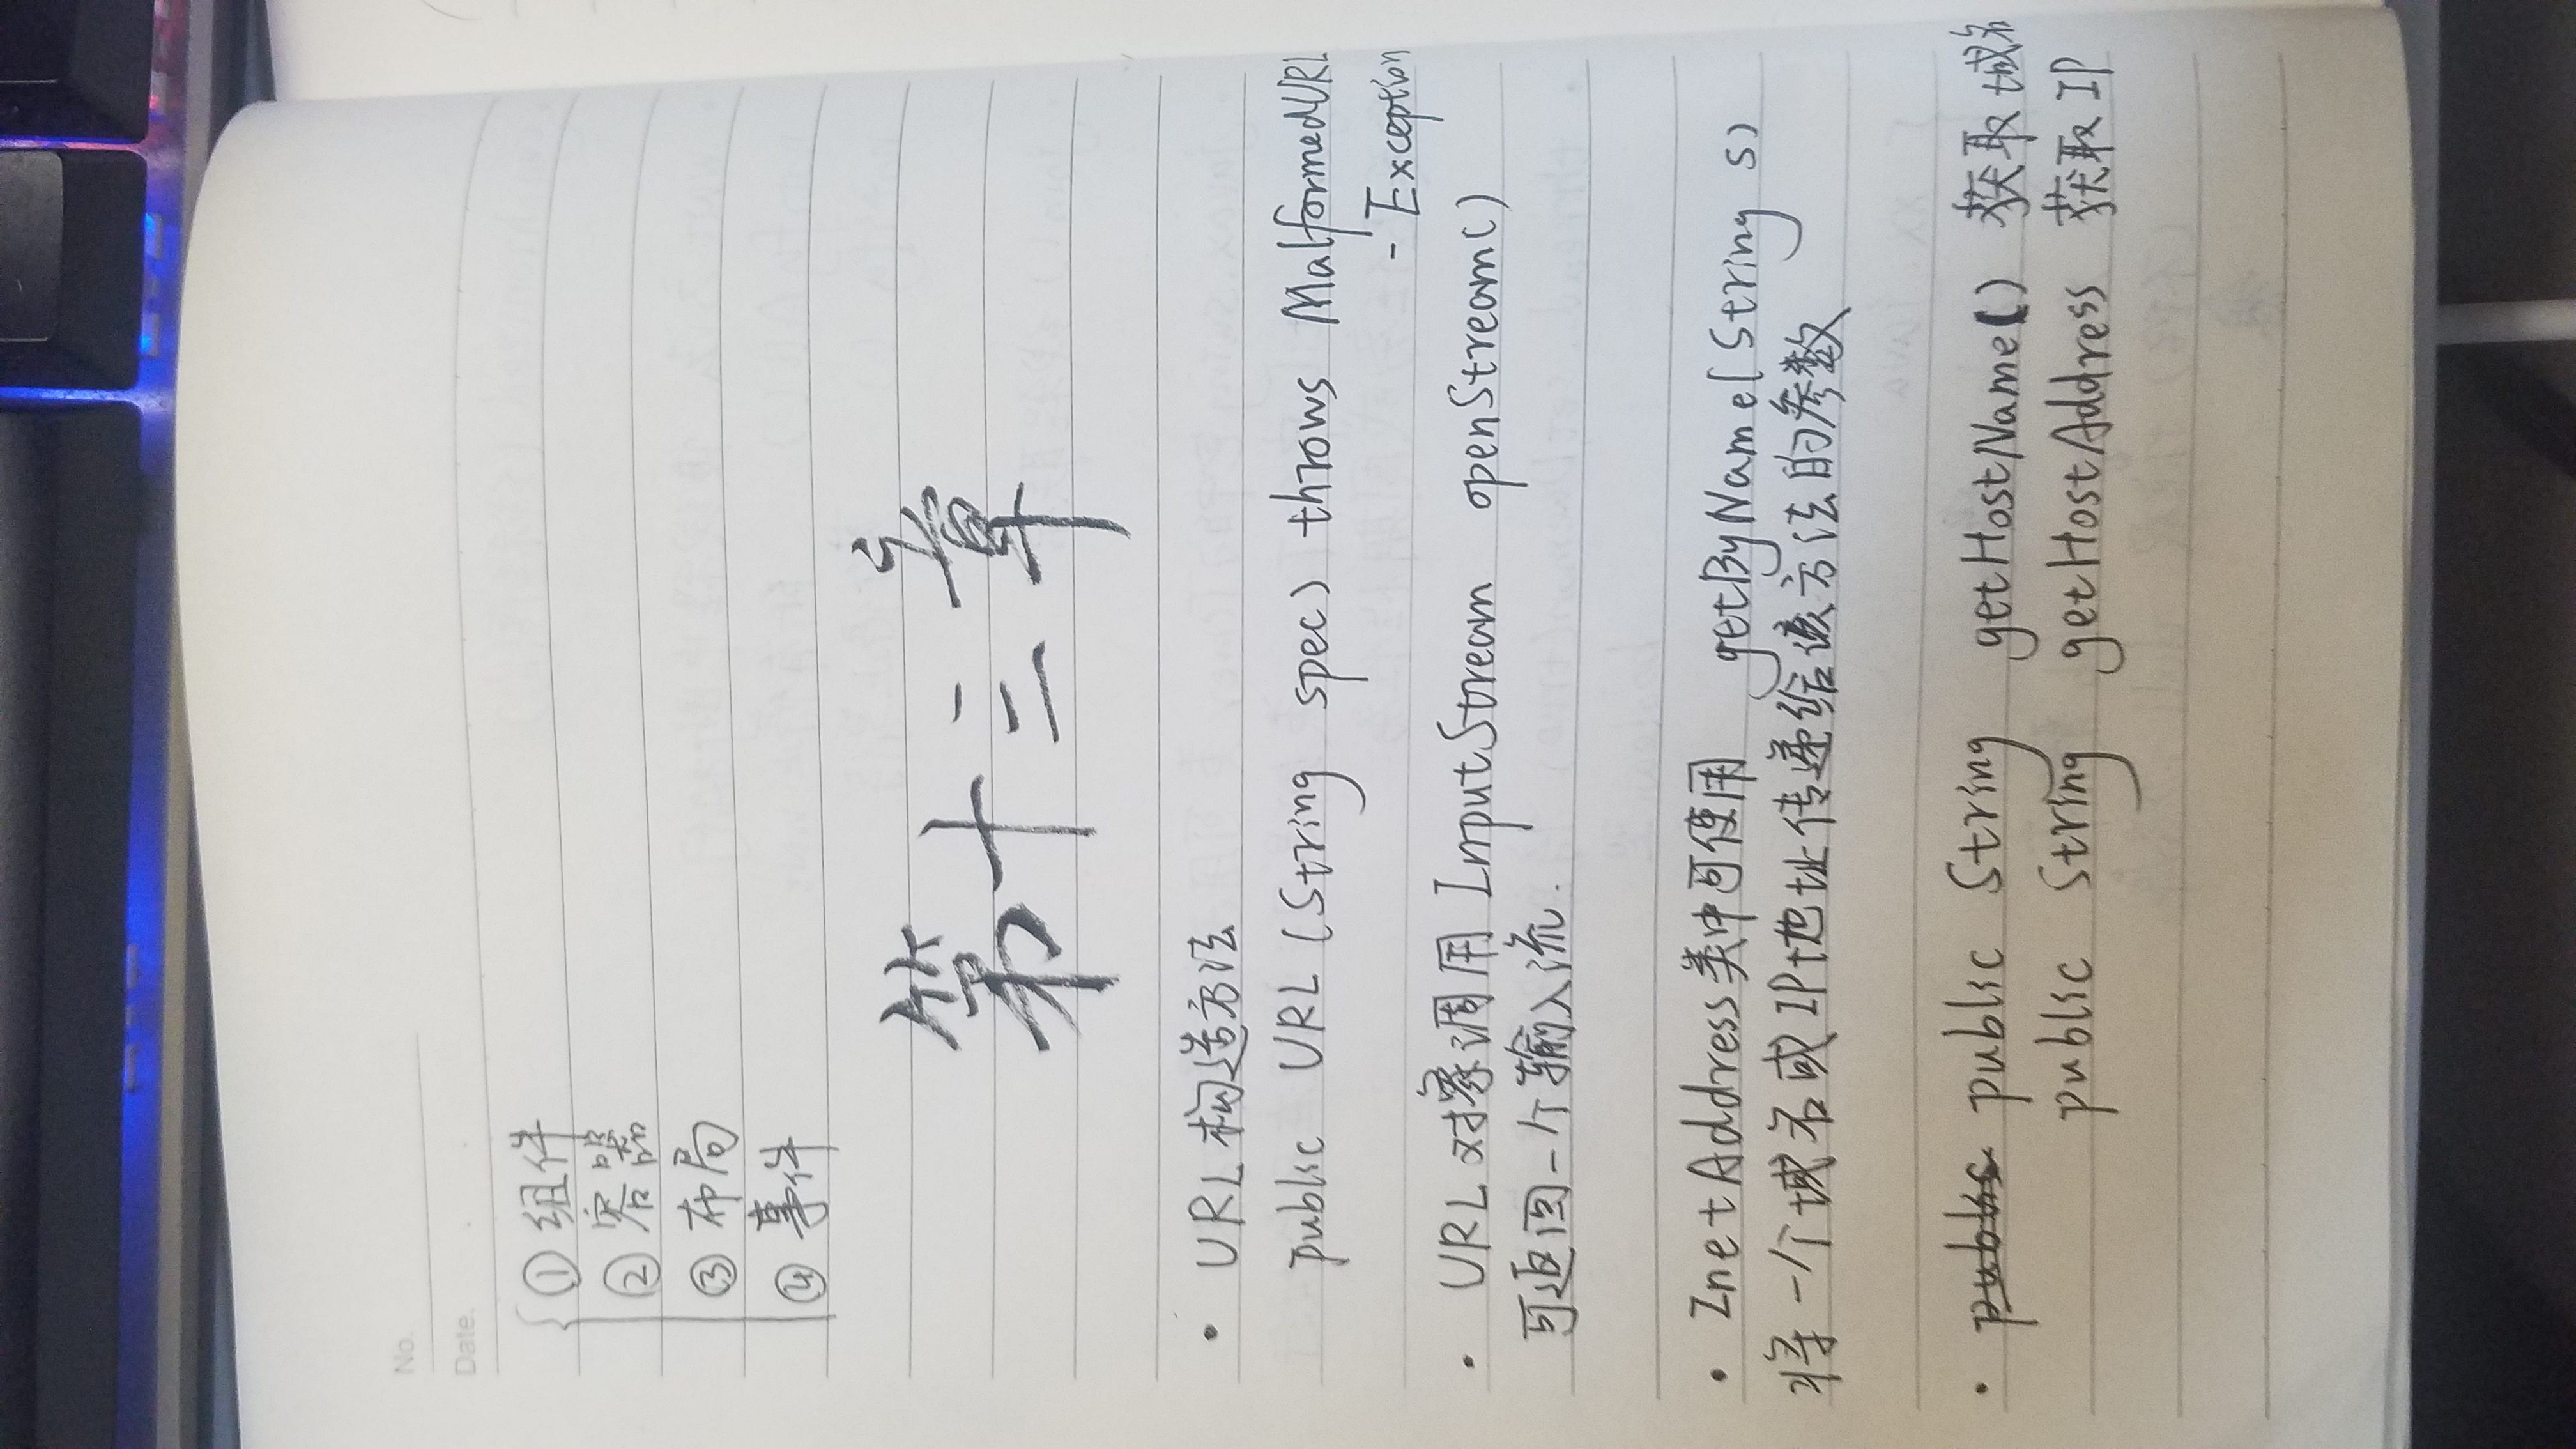 No.
Date.
① 组件
② 容器
③ 布局
④ 事件
第十三章
• URL构造方法
public URL (String spec) throws MalformedURL
- Exception
• URL对象调用 InputStream openStream()
可返回一个输入流.
• InetAddress类中可使用 getByName(String s)
将一个域名或IP地址传递给该方法的参数
• public String getHostName() 获取域名
public String getHostAddress 获取IP